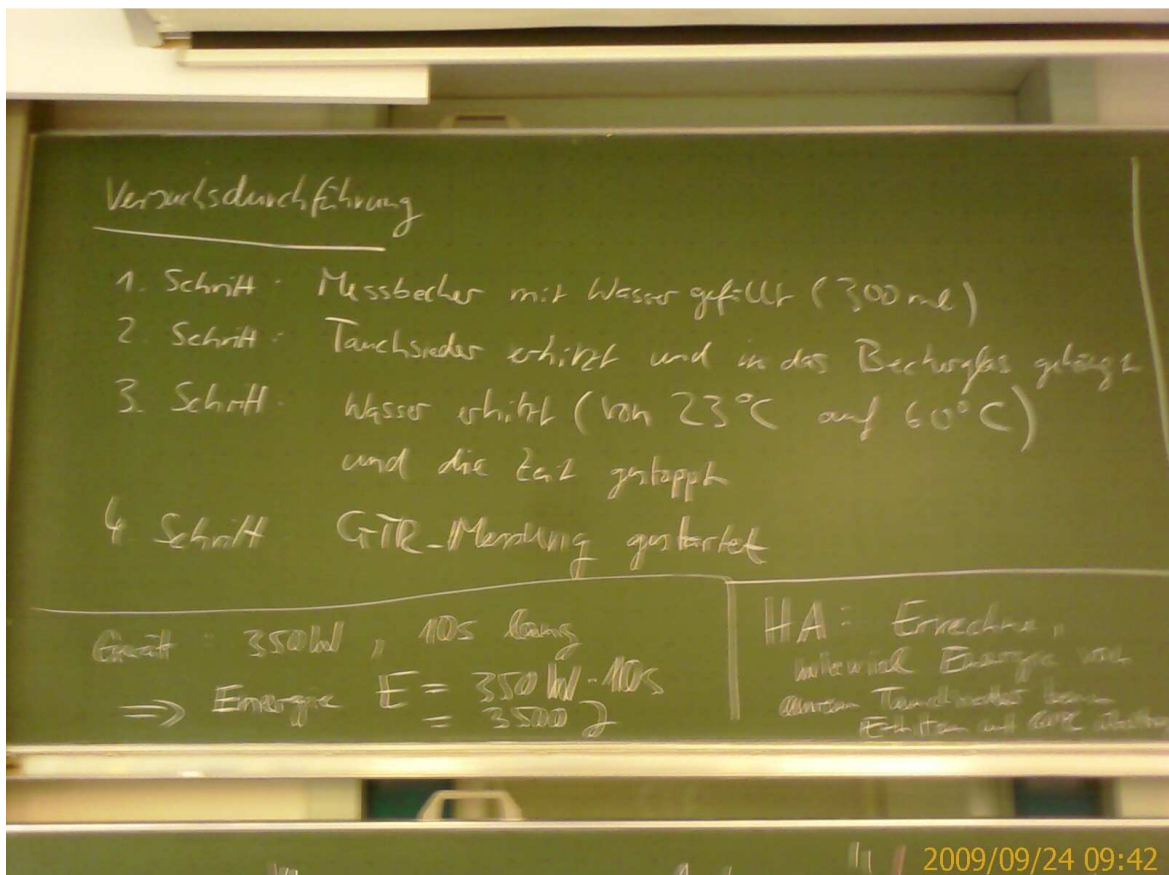 Versuchsdurchführung
1. Schritt: Messbecher mit Wasser gefüllt (300ml)
2. Schritt: Tauchsieder erhitzt und in das Becherglas gehängt
3. Schritt: Wasser erhitzt (von 23°C auf 60°C)
und die Zeit gestoppt
4 Schritt GTR-Messung gestartet
Gerät: 350W, 10s lang
=> Energie E = 350W·10s
= 3500 J
HA: Errechne,
wieviel Energie von
Tauchsieder beim
Erhitzen auf
2009/09/24 09:42